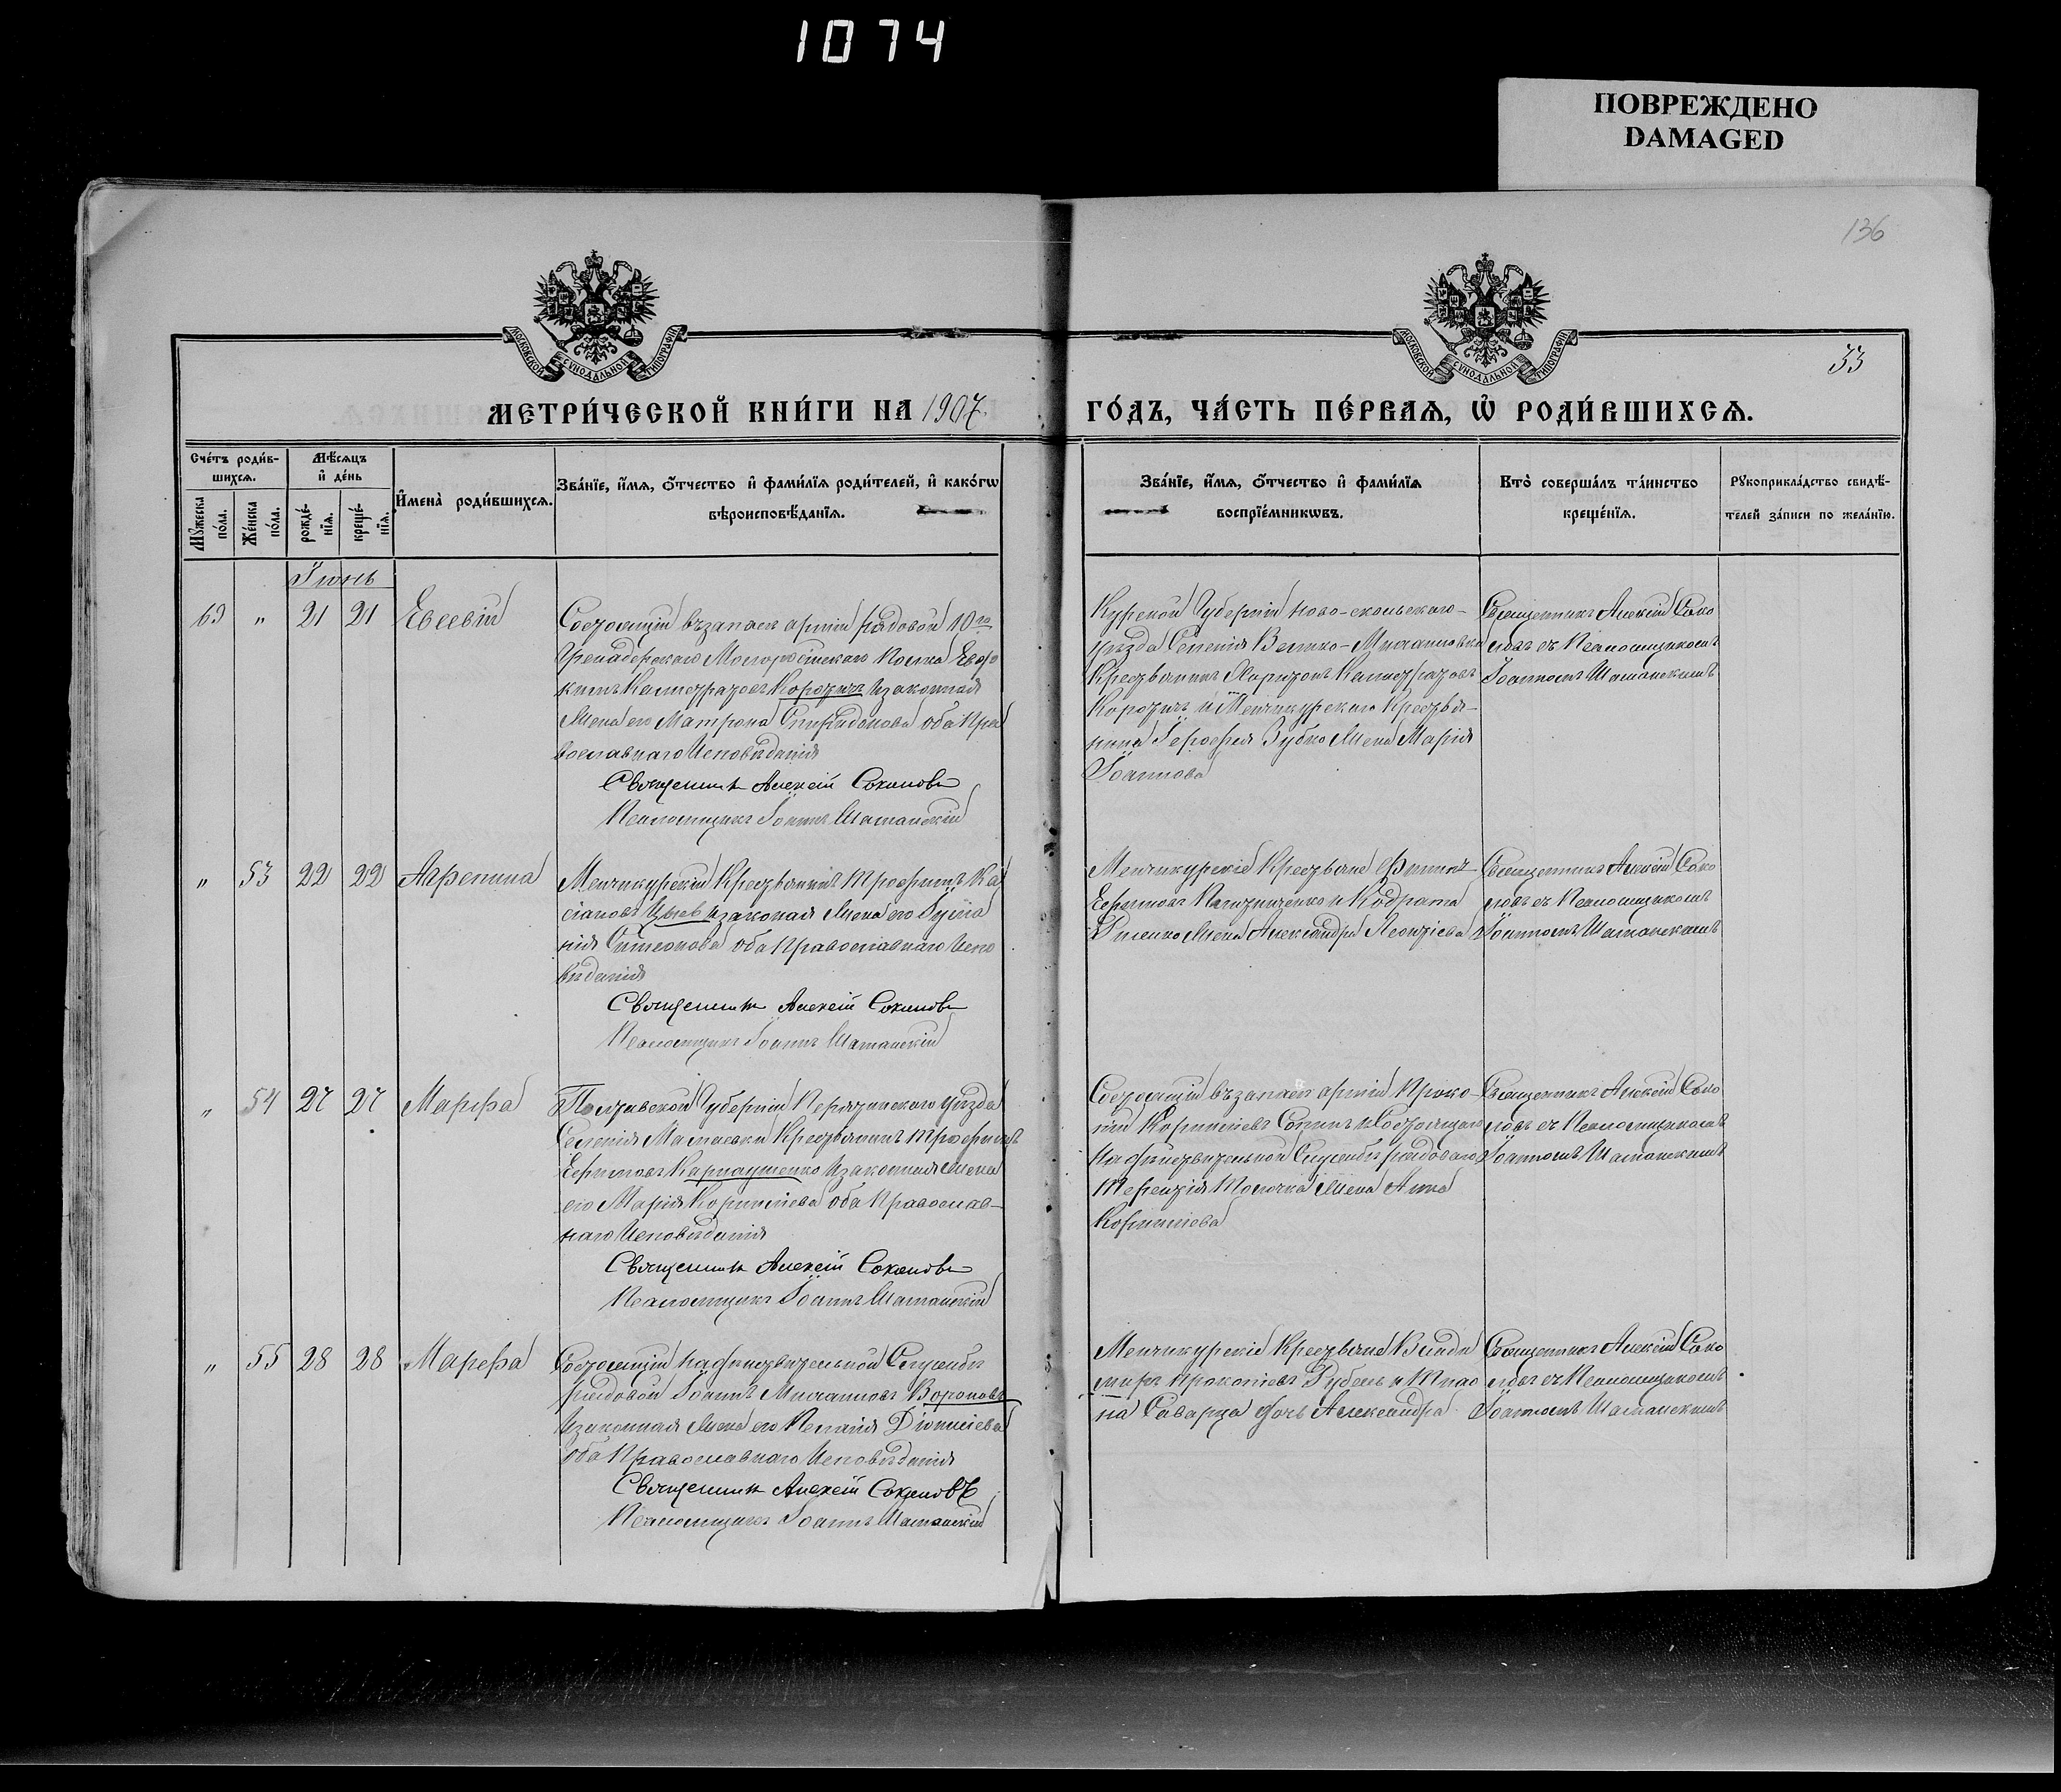 1074
ПОВРЕЖДЕНО
DAMAGED
136
МОСКОВСКОЙ СѴНОДАЛЬНОЙ ТИПОГРАФІИ
МОСКОВСКОЙ СѴНОДАЛЬНОЙ ТИПОГРАФІИ
33
МЕТРИ́ЧЕСКОЙ КНИ́ГИ НА 1907
ГО́ДЪ, ЧА́СТЬ ПЕ́РВАѦ, Ѡ҆ РОДИ́ВШИХСѦ.
Сче́тъ роди́в-
шихсѧ.
Мѣ́сѧцъ
и҆ де́нь
Мꙋ́жеска по́ла.
Же́нска по́ла.
рожде́-
нїѧ.
креще́-
нїѧ.
И҆мена̀ роди́вшихсѧ.
Зва́нїе, и҆́мѧ, ѻ҆́тчество и҆ фами́лїѧ роди́телей, и҆ како́гѡ
вѣроисповѣ́данїѧ.
Зва́нїе, и҆́мѧ, ѻ҆́тчество и҆ фами́лїѧ
воспрїе́мникѡвъ.
Кто̀ соверша́лъ та́инство
креще́нїѧ.
Рꙋкоприкла́дство свидѣ́-
телей за́писи по жела́нїю.
Іюнь
69 " 21 21 Евсевій
Состоящій въ запасѣ арміи рядовой 10го
Гренадерскаго Малороссійскаго полка Евфи
Калистратовъ Коротичъ и законная
жена его Матрона Спиридонова оба пра
вославнаго исповѣданія
Священникъ Алексій Соколовъ
Псаломщикъ Іоаннъ Шаманскій
Курской Губерніи Ново-оскольскаго
уѣзда Селенія Велико-Михайловки
Крестьянинъ Харитонъ Калистратовъ
Коротичъ и Менчикурскаго Крестья-
нина Іерофея Зубко жена Марія
Іоаннова
Священникъ Алексій Соко
ловъ съ Псаломщикомъ
Іоанномъ Шаманскимъ
" 53 22 22 Агрепина
Менчикурскій Крестьянинъ Трофимъ Ка
сіановъ Цыбъ и законая жена его Іуліа
нія Симеонова оба православнаго испо
вѣданія
Священникъ Алексій Соколовъ
Псаломщикъ Іоаннъ Шаманскій
Менчикурскіе Крестьяне Филипъ
Ефимовъ и Кодрата
жена Александра Леонтіева
Священникъ Алексій Соко
ловъ съ Псаломщикомъ
Іоанномъ Шаманскимъ
" 54 27 27 Марфа
Полтавской Губерніи Пирятинскаго уѣзда
Селенія Крестьянинъ Трофимъ
Ефимовъ Карпаушенко и законная жена
его Марія Корнилієва оба православ-
наго исповѣданія
Священникъ Алексій Соколовъ
Псаломщикъ Іоаннъ Шаманскій
Состоящій въ запасѣ арміи Проко-
пій Корниліевъ и состоящаго
на дѣйствительной Службѣ рядоваго
Терентія жена Анна
Корниліева
Священникъ Алексій Соко
ловъ съ Псаломщикомъ
Іоанномъ Шаманскимъ
" 55 28 28 Марефа
Состоящій на дѣйствительной Службѣ
рядовой Іоаннъ Михаиловъ Вороновъ
и законная жена его Пелагія Діонисіева
оба православнаго исповѣданія
Священникъ Алексій Соколовъ
Псаломщикъ Іоаннъ Шаманскій
Менчикурскіе Крестьяне Влади
миръ Прокопіевъ и
на дочь Александра
Священникъ Алексій Соко
ловъ съ Псаломщикомъ
Іоанномъ Шаманскимъ